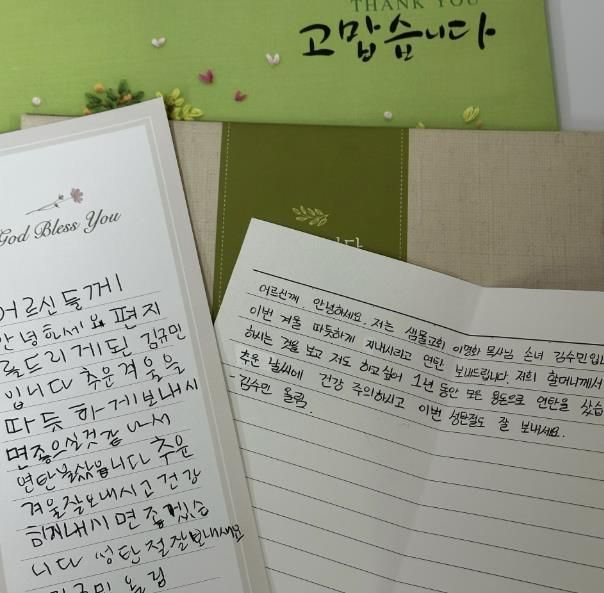 THANK YOU
고맙습니다
God Bless You
어르신들께!
안녕하세요 편지
를드리게된 김규민
입니다 추운겨울을
따듯하게보내시
면좋으실것같아서
연탄불샀습니다 추운
겨울잘보내시고 건강
하게내시면 좋겠습
니다 성탄절잘보내세요
김규민 올림
어르신께 안녕하세요. 저는 샘물교회 이명화 목사님 손녀 김수민입니
이번 겨울 따듯하게 지내시라고 연탄 보내드립니다. 저희 할머니께서
하시는 것을 보고 저도 하고싶어 1년 동안 모은 용돈으로 연탄을 샀습
추운 날씨에 건강 주의하시고 이번 성탄절도 잘 보내세요.
- 김수민 올림.